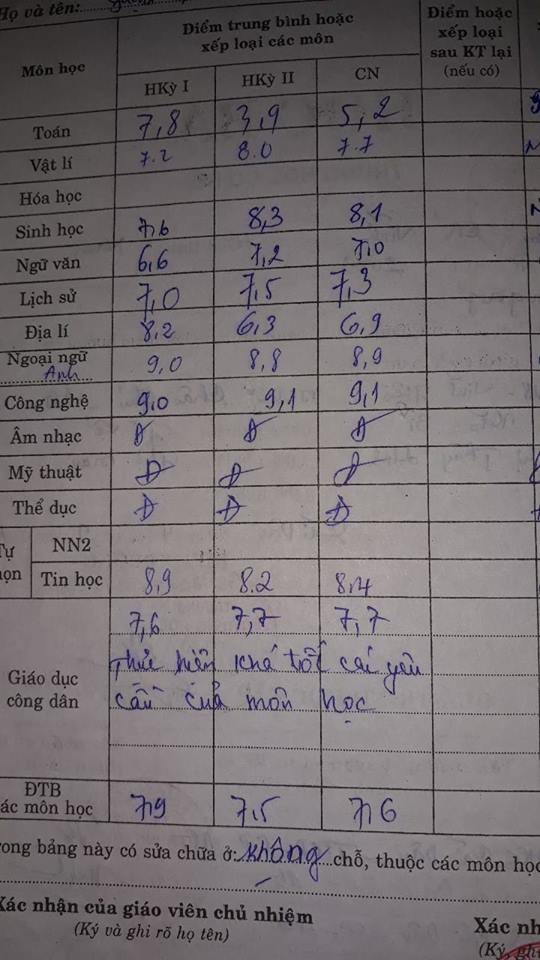 Họ và tên:
Môn học Điểm trung bình hoặc xếp loại các môn Điểm hoặc xếp loại sau KT lại (nếu có)
HKỳ I HKỳ II CN
Toán 7,8 3,9 5,2
Vật lí 7.2 8.0 7.7
Hóa học
Sinh học 7,6 8,3 8,1
Ngữ văn 6,6 7,2 7,0
Lịch sử 7,0 7,5 7,3
Địa lí 8,2 6,3 6,9
Ngoại ngữ 9,0 8,8 8,9
Anh
Công nghệ 9,0 9,1 9,1
Âm nhạc Đ Đ Đ
Mỹ thuật Đ Đ Đ
Thể dục Đ Đ Đ
Tự họn NN2
Tin học 8,9 8.2 8,4
Giáo dục công dân 7,6 7,7 7,7
Thực hiện khá tốt các yêu
cầu của môn học
ĐTB các môn học 7,9 7,5 7,6
rong bảng này có sửa chữa ở: không chỗ, thuộc các môn học
Xác nhận của giáo viên chủ nhiệm Xác nh
(Ký và ghi rõ họ tên) (Ký, ghi